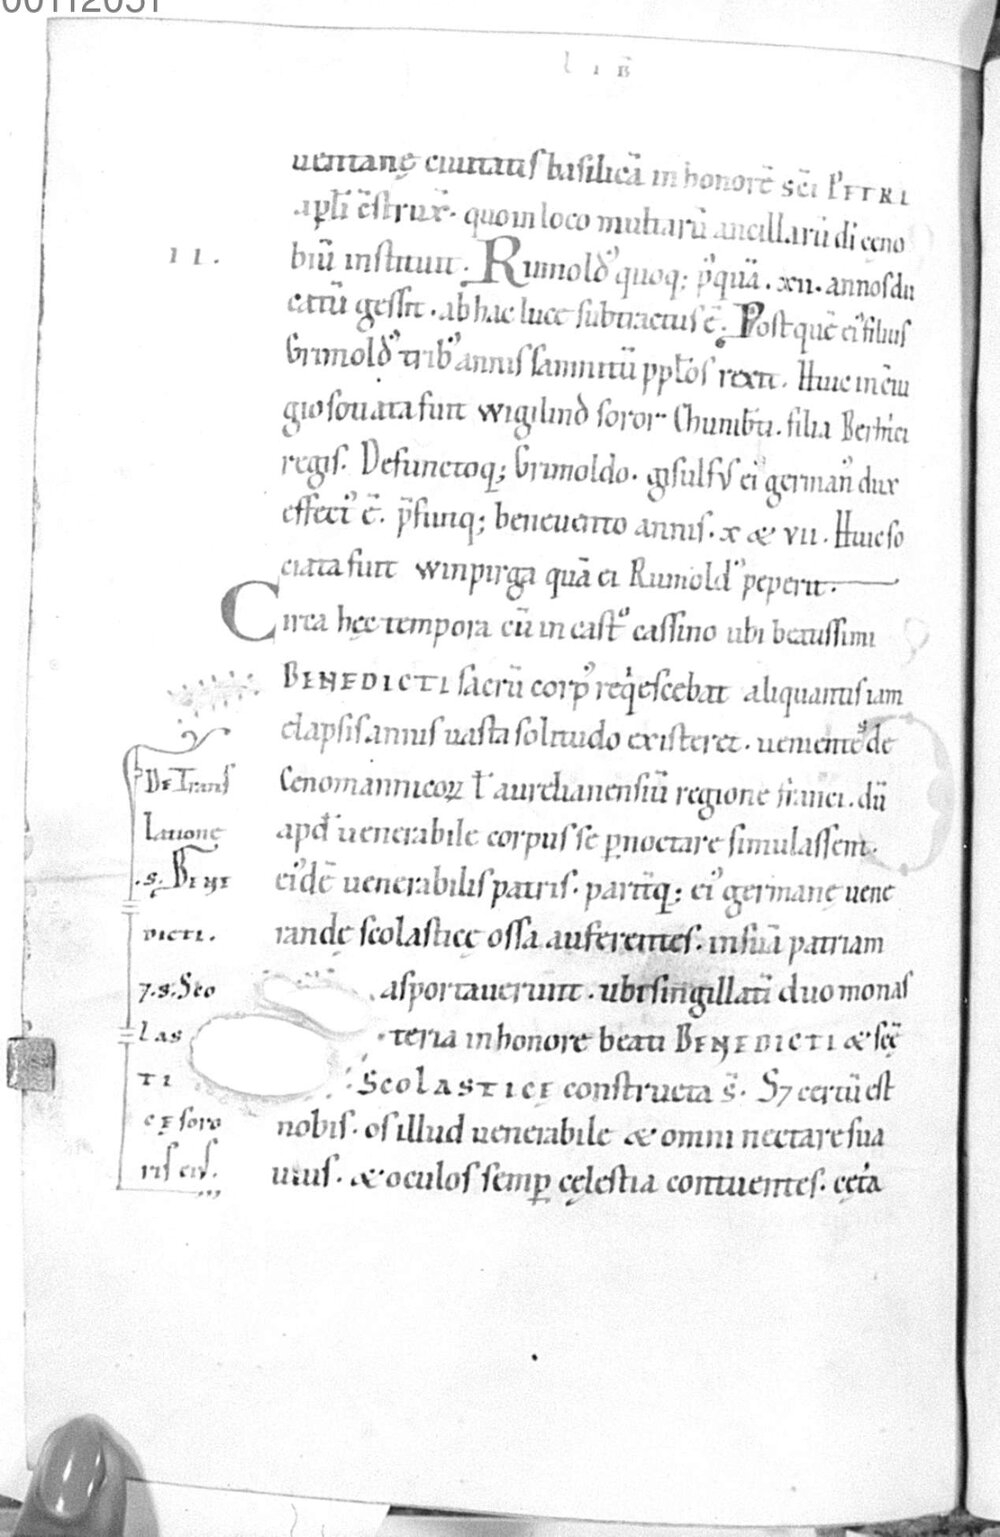 00112051
LIB̄
uentanę ciuitatis basilicā in honorē sc̄i PETRI
apl̄i c̄struxͭ. quo in loco multarū ancillarū dī cęno
II.
biū instituit. Rumoldꝰ quoq; p̄quā. xii. annos du
catū gessit. ab hac luce subtractus ē. Post quē eiꝰ filius
Grimoldꝰ tribꝰ annis samnitū pp̄l̄os rexit. Huic in c̄iu
gio sotiata fuit wigilind soror Chunib̄ti. filia Berthͥci
regis. Defunctoq; Grimoldo. gisulfus eiꝰ germanꝰ dux
effectꝰ ē. p̄fuitq; beneuento annis. x & vii. Huic so
ciata fuit winpirga quā ei Rumoldꝰ peperit.
Circa hęc tempora cū in castͦ cassino ubi beatissimi
BENEDICTI sacrū corpꝰ reqͥescebat aliquantis iam
elapsis annis uasta solitudo existeret. uenientes de
Cenomannicoꝝ ł aurelianensiū regione franci. dū
apd̄ uenerabile corpus se ꝑnoctare simulassent.
eiꝰdē uenerabilis patris. paritq; eiꝰ germanę uene
randę scolasticę ossa auferentes. in suā patriam
asportauerunt. ubi singillatī duo monas
teria in honore beati BENEDICTI & sc̄ę
SCOLASTICE constructa s̄. S7 certū est
nobis. os illud uenerabile & omni nectare sua
uius. & oculos semꝑ cęlestia contuentes. cętͣa
De Trans
Latione
.s. BENE
DICTI.
7.s. Sco
LAS
TI
CE soro
ris eiꝰ.